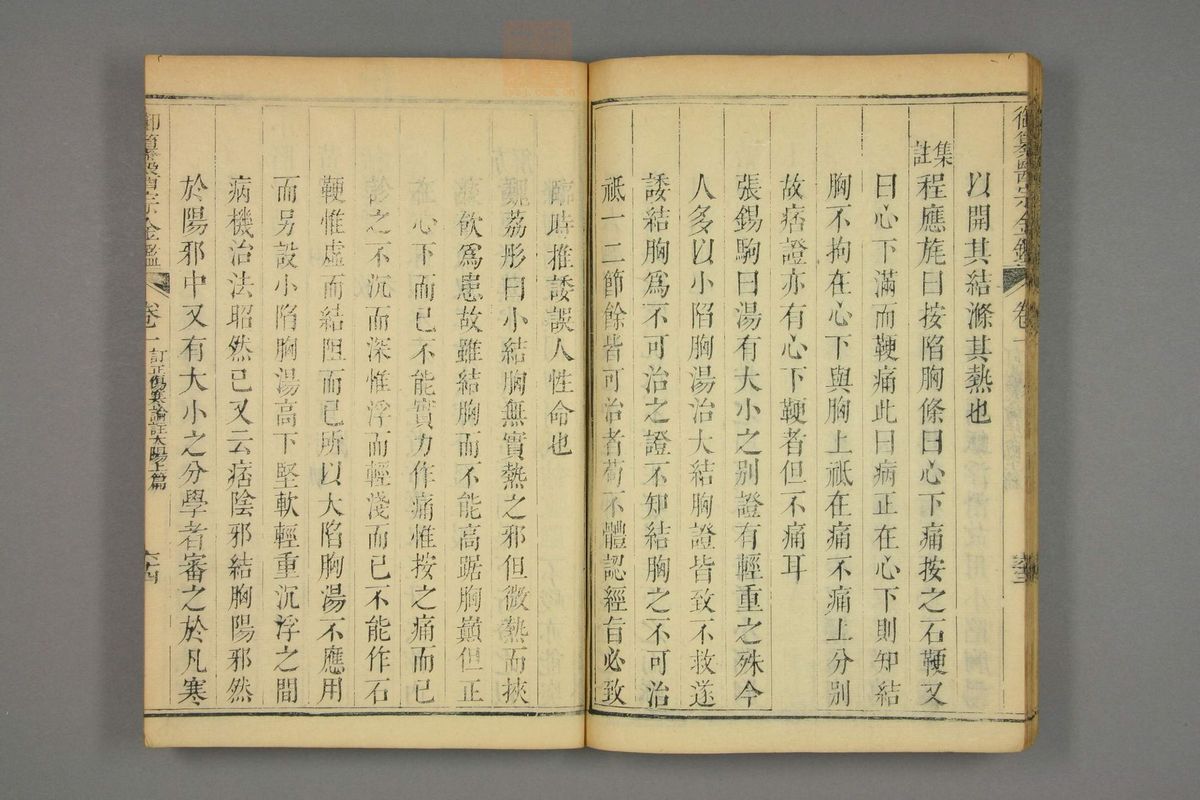 御纂醫宗金鑑 卷一
以開其結滌其熱也
集註程應旄曰按陷胸條曰心下痛按之石鞕又
曰心下滿而鞕痛此曰病正在心下則知結
胸不拘在心下與胸上祇在痛不痛上分別
故痞證亦有心下鞕者但不痛耳
張錫駒曰湯有大小之別證有輕重之殊今
人多以小陷胸湯治大結胸證皆致不救遂
諉結胸爲不可治之證不知結胸之不可治
祇一二節餘皆可治者苟不體認經旨必致
臨時推諉誤人性命也
魏荔彤曰小結胸無實熱之邪但微熱而挾
飲爲患故雖結胸而不能高踞胸巔但正
心下而已不能實力作痛惟按之痛而已
之不沉而深惟浮而輕淺而已不能作石
鞕惟虛而結阻而已所以大陷胸湯不應用
而另設小陷胸湯高下堅軟輕重沉浮之間
病機治法昭然已又云痞陰邪結胸陽邪然
於陽邪中又有大小之分學者審之於凡寒
御纂醫宗金鑑 卷一 訂正傷寒論註太陽上篇 六四